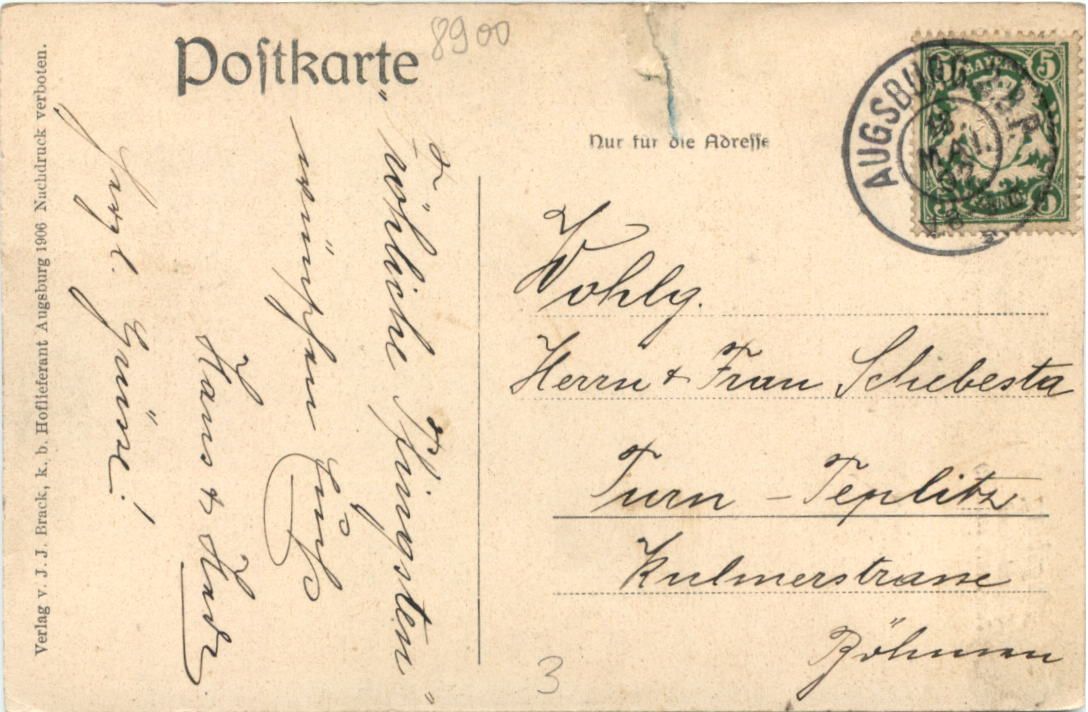 Postkarte
8900
Nur für die Adresse
AUGSBURG
MAI
BAYERN
5
5
"Fröhliche Pfingsten"
wünschen Euch
Hans &
Herzl. Grüsse!
Wohlg.
Herrn & Frau Schebesta
Turn - Teplitz
Kulmerstrasse
Böhmen
3
Verlag v. J. J. Brack, k. b. Hoflieferant Augsburg 1906 Nachdruck verboten.